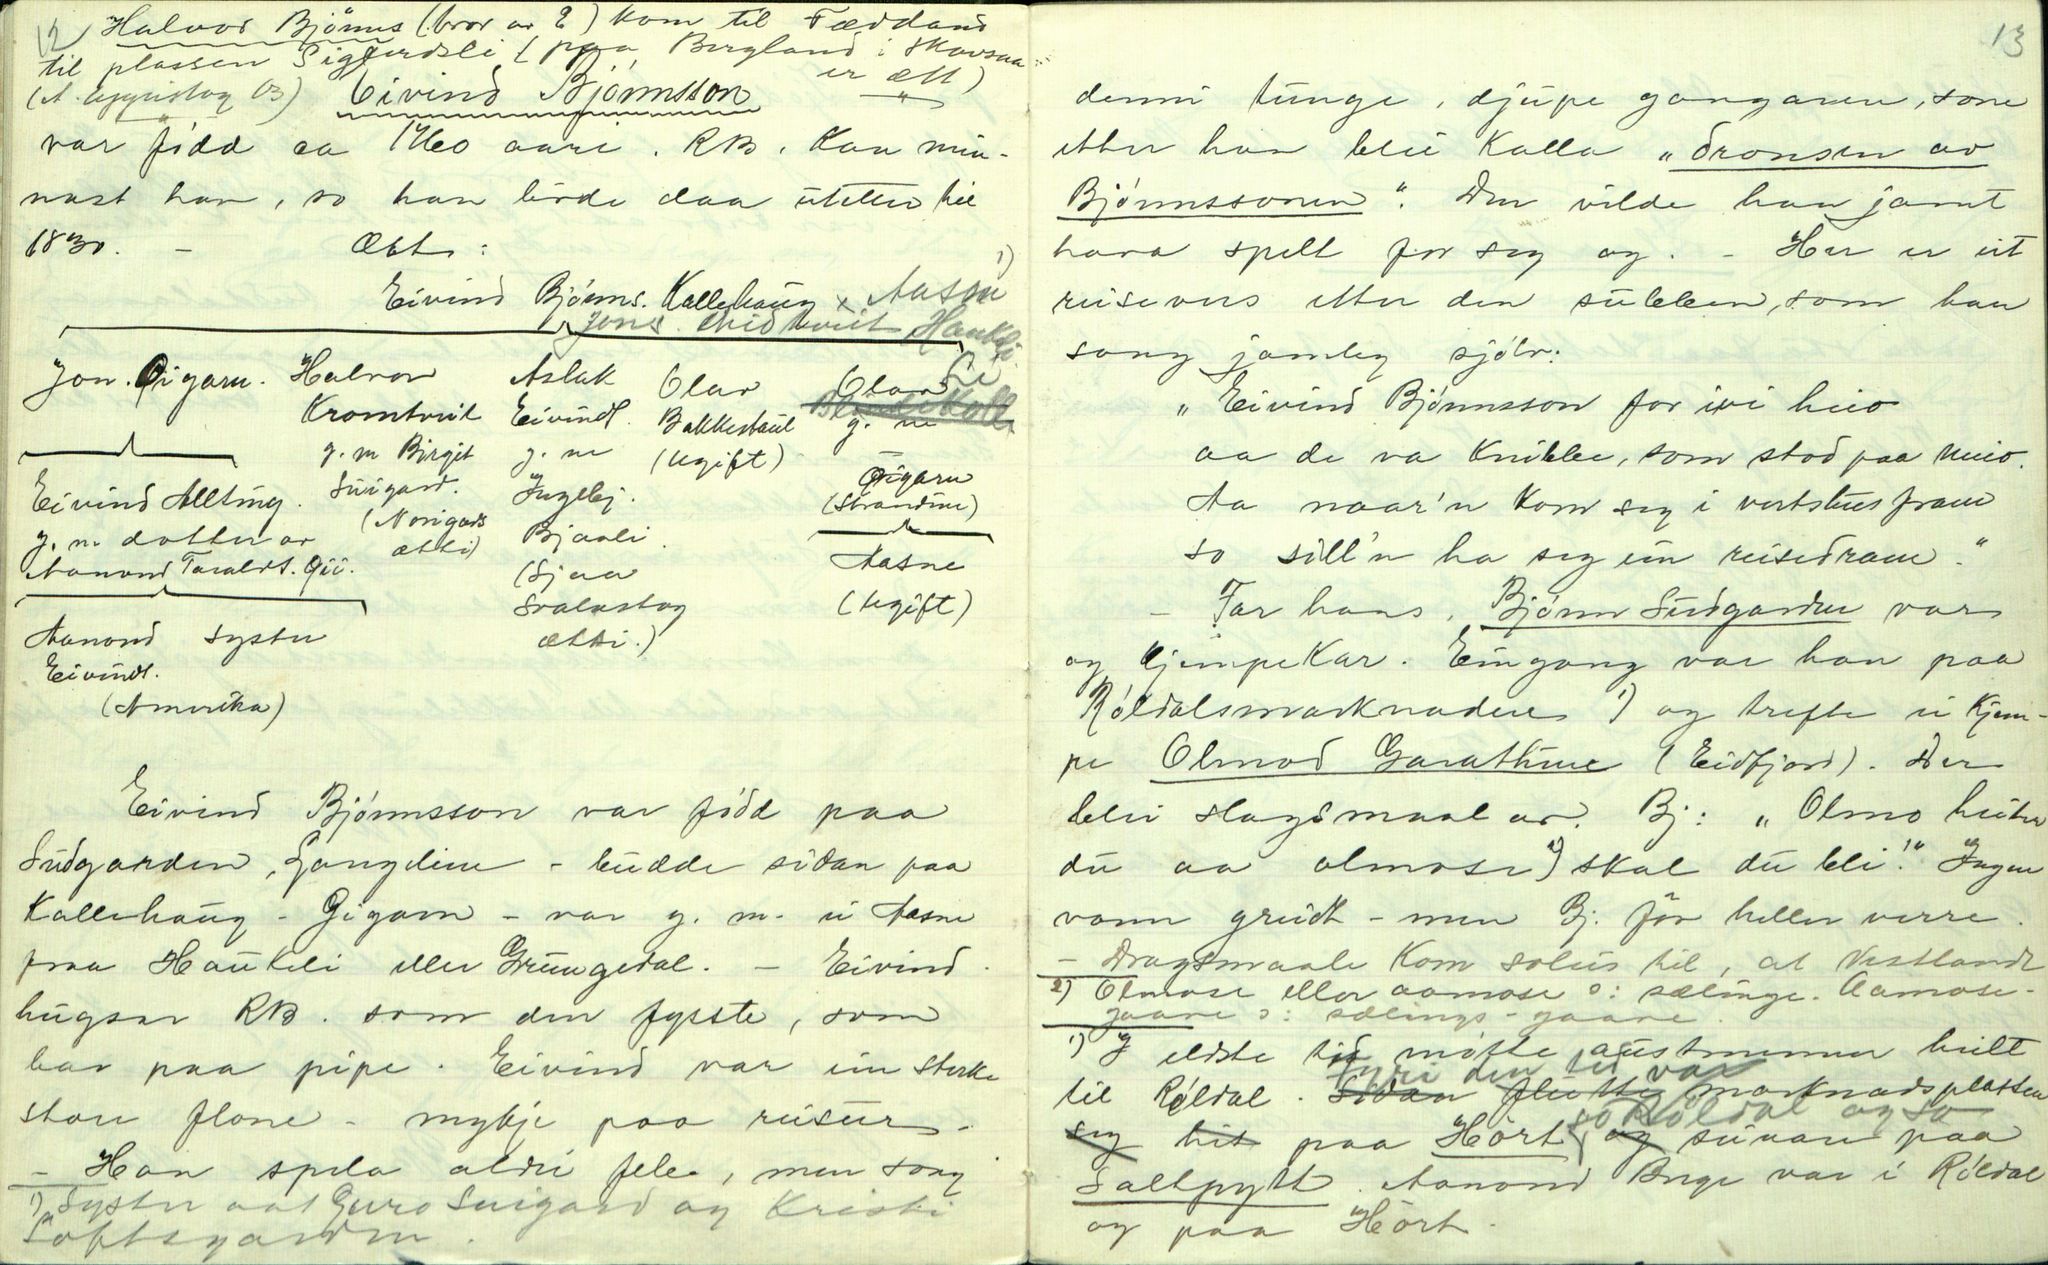 12
Halvor Bjönns (bror av E) kom til Fæddand
til plassen Sigurdsli (paa Bergland i Skavsaa
er ætt)
Eivind Bjönnsson
var född ca 1760 aari. RB. kan min-
nast han, so han livde daa utetter til
1830. – Ætt:
Eivind Bjönns. Kallehaug x Aasne 1)
Jons. Midtveit Haukeli
Jon. Gigarn.
Eivind Allting.
g. m. dotter av
Aanond Taraldt. Gii.
Aanond syster
Eivindt.
(Amerika)
Halvor
Kromtveit
g. m Birgit
Suigard.
(Norigards
ætti)
Aslak
Eivindt.
g. m
Ingebj.
Bjaali
(Sjaa
Svalastog
ætti.)
Olav
Bakkestaul
(ugift)
Olav
g. m
–
Gigarn
(Strandine)
Aasne
(ugift)
Eivind Bjönnsson var född paa
Sudgarden, – budde sidan paa
Kallehaug – Gigarn – var g. m. ei Aasne
fraa Haukeli eller Grungedal. – Eivind
hugsar RB. som den fyste, som
bar paa pipe. Eivind var ein sterke
stor flone – mykje paa reisur.
– Han spela aldri fele, men song
1) Syster aat Guro Suigard og Kristi
Loftsgarden.
13
denni tunge, djupe gangaren, som
etter han blei kalla "Dronsen av
Bjönnssonen". Den vilde han jamt
hava spelt for seg og. – Her er eit
reisevers etter den sullen, som han
song jamleg sjölv:
"Eivind Bjönnsson for ivi heio
aa de va knible, som stod paa meio.
Aa naar'n kom seg i vertshus fram
so sill'n ha seg ein reisedram."
– Far hans, Bjönn Sudgarden var
og kjempekar. Eingong var han paa
Röldalsmarknaden 1) og trefte ei kjem-
pe Olmod Garathun (Eidfjord). Der
blei slagsmaal av. Bj: "Olmo heiter
du aa olmose 2) skal du bli!" Ingen
vann greidt – men Bj. för heller verre.
– Dragsmaale kom soleis til, at Vestlandt
2) Olmose eller aamose o: sælinge. Aamose-
gaave o: sælings-gaave.
1) I eldste tid mötte austmennar heilt
til Röldal. Sidan flutte marknadsplassen
fyri den tid var
seg hit paa Hört, og suvan paa
so Röldal og so
Saltpytt. Aanond Bege var i Röldal
og paa Hört.